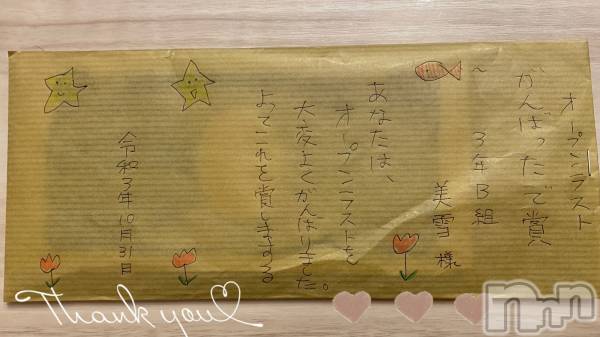 オープンラスト
がんばったで賞
~
3年B組
美雪 様
あなたは、
オープンラストを
大変よくがんばりました。
よってこれを賞しまする
令和3年10月31日
Thank you
Nnn